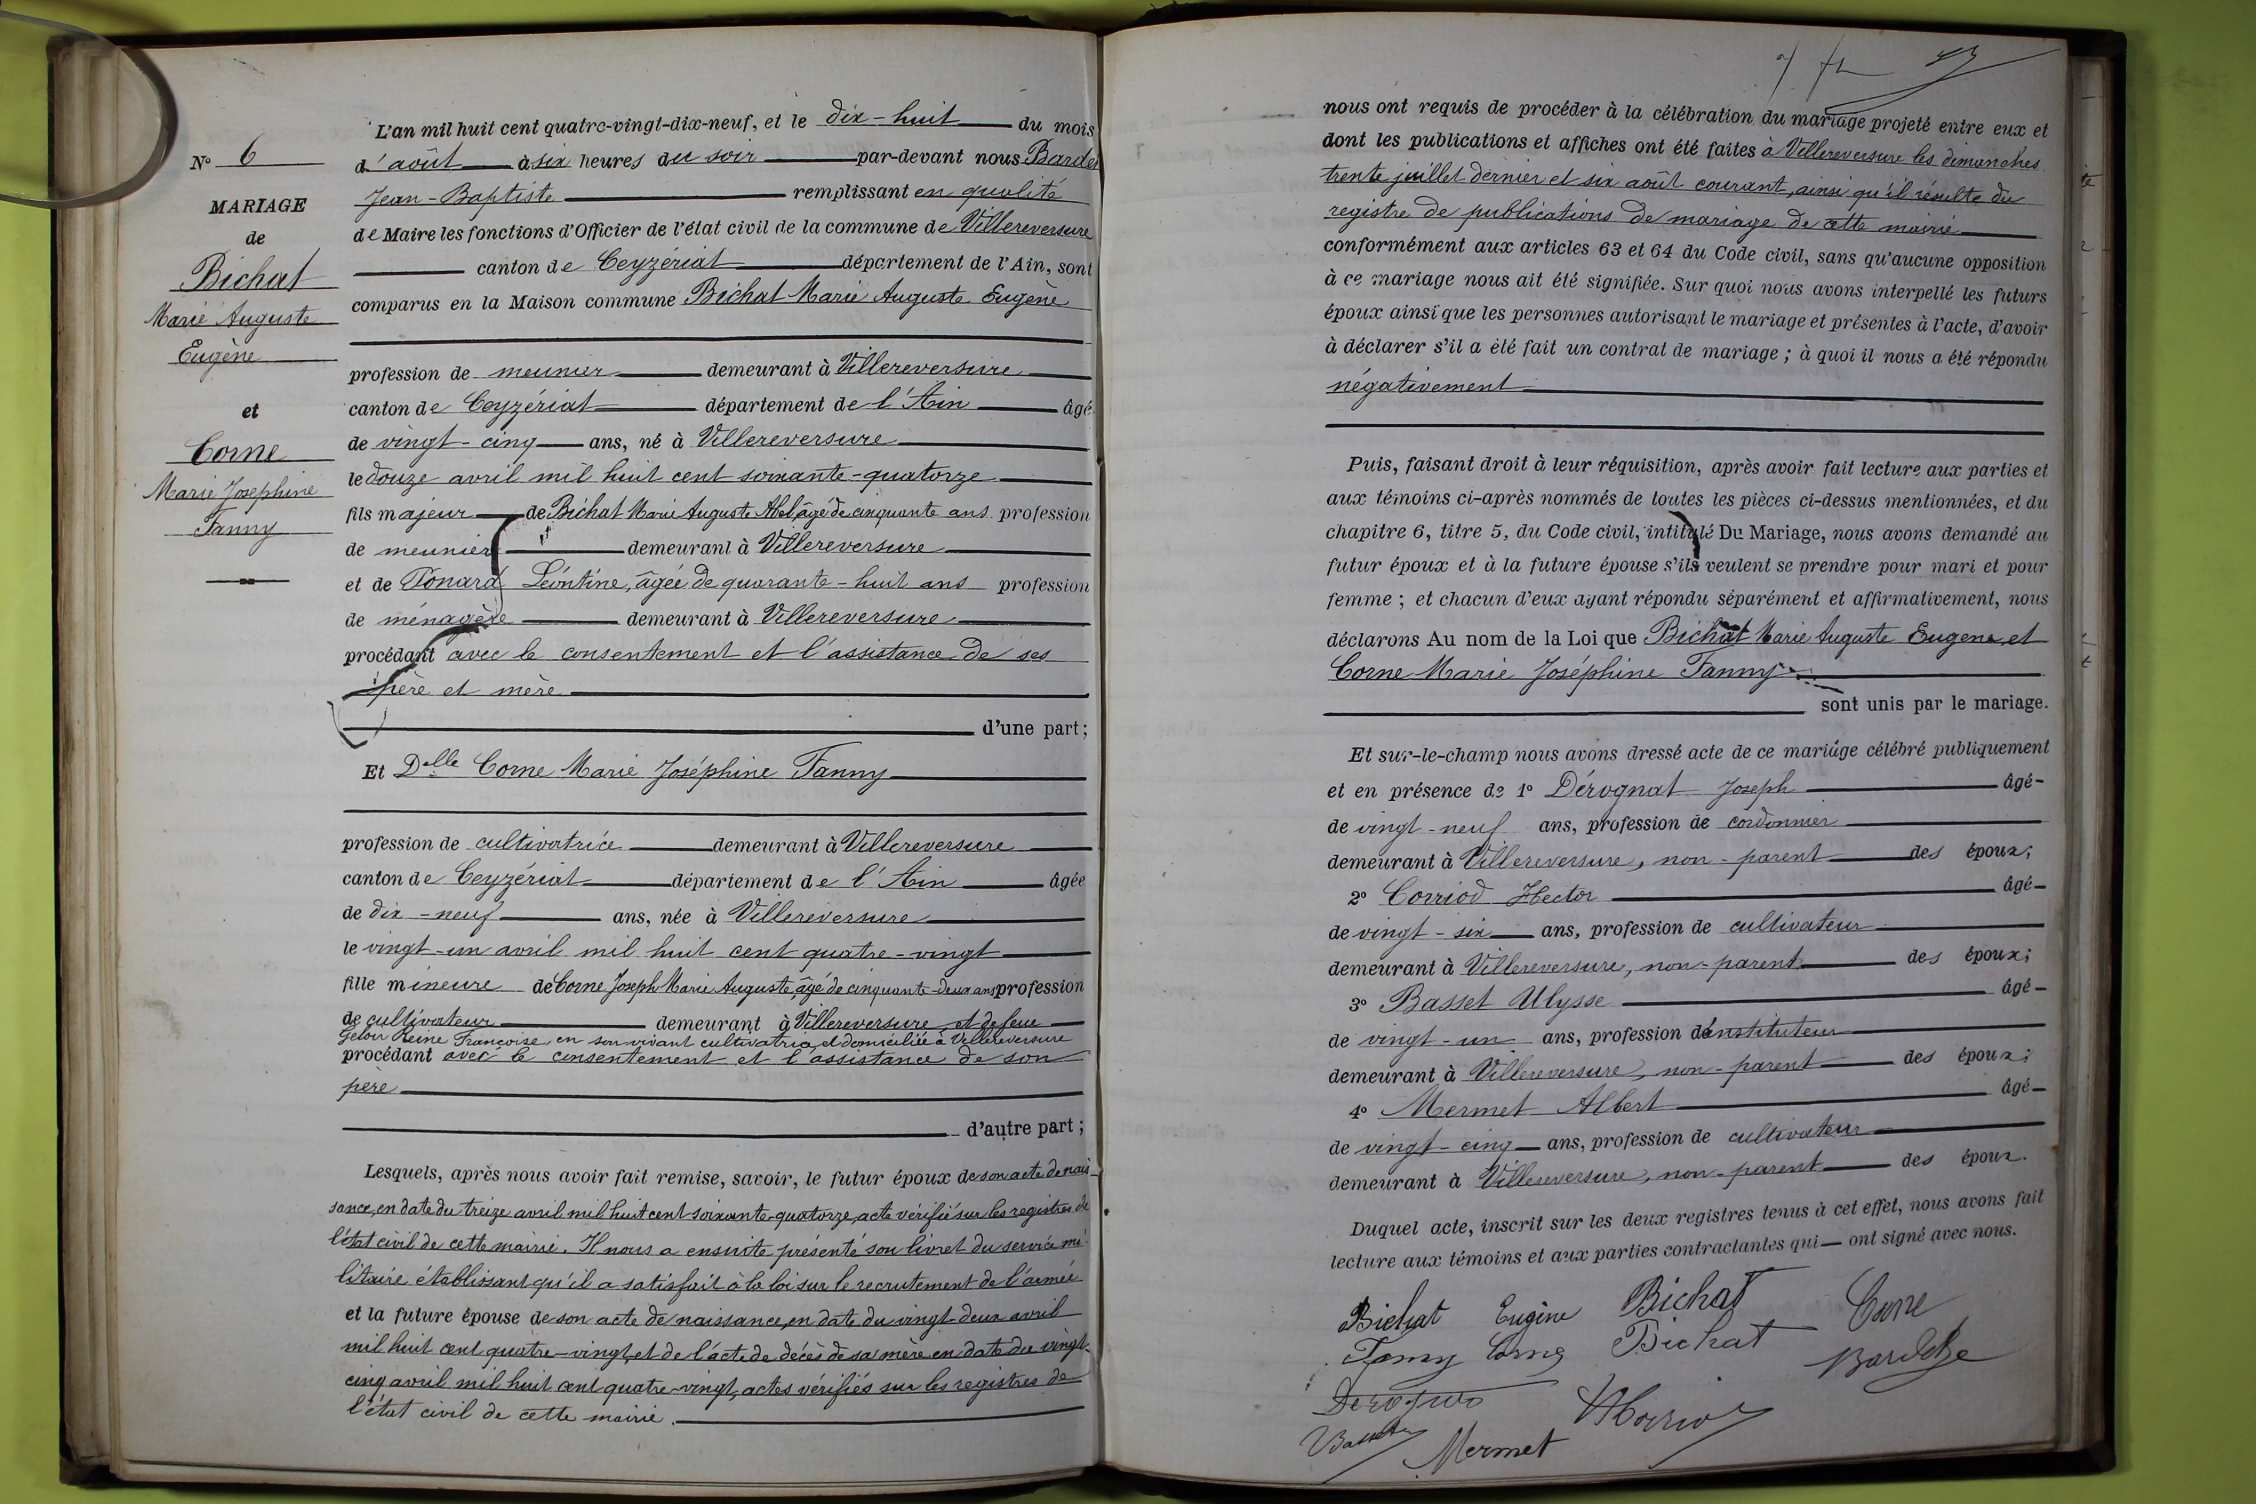 N° 6
MARIAGE
de
Bichat
Marie Auguste
Eugène
et
Corne
Marie Joséphine
Fanny
L'an mil huit cent quatre-vingt-dix-neuf, et le dix-huit du mois
d'août à six heures du soir par-devant nous Bardet
Jean-Baptiste remplissant en qualité
de Maire les fonctions d'Officier de l'état civil de la commune de Villereversure
canton de Ceyzériat département de l'Ain, sont
comparus en la Maison commune Bichat Marie Auguste Eugène
profession de meunier demeurant à Villereversure
canton de Ceyzériat département de l'Ain âgé
de vingt-cinq ans, né à Villereversure
le douze avril mil huit cent soixante-quatorze
fils majeur de Bichat Marie Auguste Abel, âgé de cinquante ans profession
de meunier demeurant à Villereversure
et de Tonard Léontine, âgée de quarante-huit ans profession
de ménagère demeurant à Villereversure
procédant avec le consentement et l'assistance de ses
père et mère
d'une part;
Et Delle Corne Marie Joséphine Fanny
profession de cultivatrice demeurant à Villereversure
canton de Ceyzériat département de l'Ain âgée
de dix-neuf ans, née à Villereversure
le vingt-un avril mil huit cent quatre-vingt
fille mineure de Corne Joseph Marie Auguste, âgé de cinquante-deux ans profession
de cultivateur demeurant à Villereversure et de feue
Reine Françoise en son vivant cultivatrice et domiciliée à Villereversure
procédant avec le consentement et l'assistance de son
père
d'autre part;
Lesquels, après nous avoir fait remise, savoir, le futur époux de son acte de nais-
sance, en date du treize avril mil huit cent soixante-quatorze, acte vérifié sur les registres de
l'état civil de cette mairie. Il nous a ensuite présenté son livret du service mi-
litaire établissant qu'il a satisfait à la loi sur le recrutement de l'armée
et la future épouse de son acte de naissance, en date du vingt-deux avril
mil huit cent quatre-vingt, et de l'acte de décès de sa mère en date du vingt-
cinq avril mil huit cent quatre-vingt, actes vérifiés sur les registres de
l'état civil de cette mairie.
nous ont requis de procéder à la célébration du mariage projeté entre eux et
dont les publications et affiches ont été faites à Villereversure les dimanches
trente juillet dernier et six août courant, ainsi qu'il résulte du
registre de publications de mariage de cette mairie
conformément aux articles 63 et 64 du Code civil, sans qu'aucune opposition
à ce mariage nous ait été signifiée. Sur quoi nous avons interpellé les futurs
époux ainsi que les personnes autorisant le mariage et présentes à l'acte, d'avoir
à déclarer s'il a été fait un contrat de mariage; à quoi il nous a été répondu
négativement
Puis, faisant droit à leur réquisition, après avoir fait lecture aux parties et
aux témoins ci-après nommés de toutes les pièces ci-dessus mentionnées, et du
chapitre 6, titre 5, du Code civil, intitulé Du Mariage, nous avons demandé au
futur époux et à la future épouse s'ils veulent se prendre pour mari et pour
femme; et chacun d'eux ayant répondu séparément et affirmativement, nous
déclarons Au nom de la Loi que Bichat Marie Auguste Eugène et
Corne Marie Joséphine Fanny
sont unis par le mariage.
Et sur-le-champ nous avons dressé acte de ce mariage célébré publiquement
et en présence de 1° Dérognat Joseph âgé
de vingt-neuf ans, profession de cordonnier
demeurant à Villereversure, non-parent des époux;
2° Corriod Hector âgé
de vingt-six ans, profession de cultivateur
demeurant à Villereversure, non-parent des époux;
3° Basset Ulysse âgé
de vingt-un ans, profession d'instituteur
demeurant à Villereversure, non-parent des époux;
4° Mermet Albert âgé
de vingt-cinq ans, profession de cultivateur
demeurant à Villereversure, non-parent des époux.
Duquel acte, inscrit sur les deux registres tenus à cet effet, nous avons fait
lecture aux témoins et aux parties contractantes qui ont signé avec nous.
Bichat Eugène Bichat Corne
Fanny Corne Bichat
Mermet